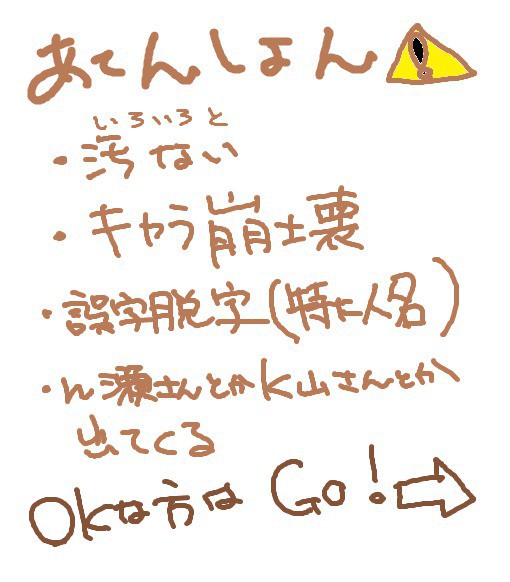 あてんしょん
いろいろと
・汚ない
・キャラ崩壊
・誤字脱字(特に人名)
・n瀬さんとかK山さんとか
出てくる
OKな方は Go!